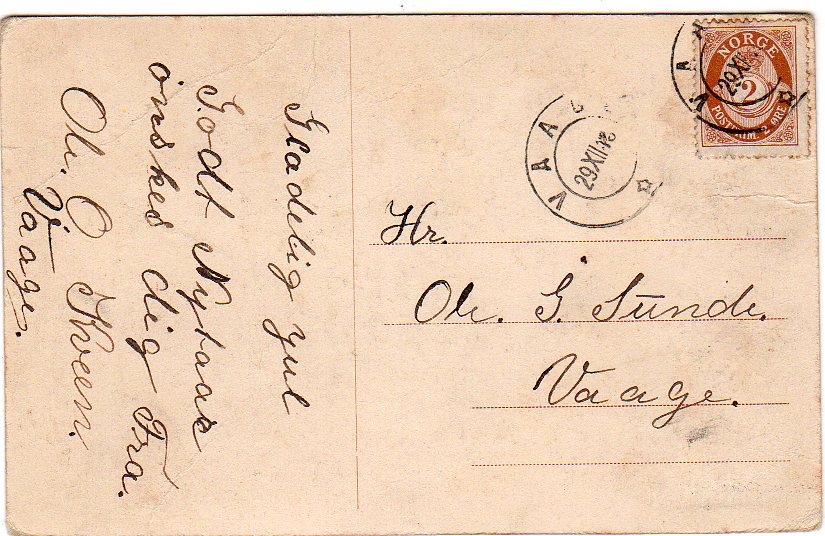 Gladelig jul
Godt Nytaar
ønskes dig Fra.
Ole. O Kveen.
Vaage.
NORGE
2
POSTFRIM. 2 ØRE
29 XII
VAA
29 XII 12
Hr.
Ole. G. Sunde.
Vaage.